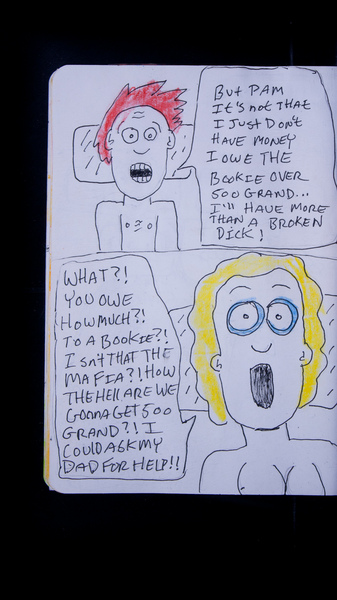 But PAM
It's not that
I Just Don't
HAVE MONEY
I OWE THE
BOOKIE OVER
500 GRAND...
I'll HAVE MORE
THAN A BROKEN
DICK!
WHAT?!
YOU OWE
HOW MUCH?!
TO A BOOKIE?!
ISn't THAT THE
MAFIA?! HOW
THE HELL ARE WE
GONNA GET 500
GRAND?! I
COULD ASK MY
DAD FOR HELP!!